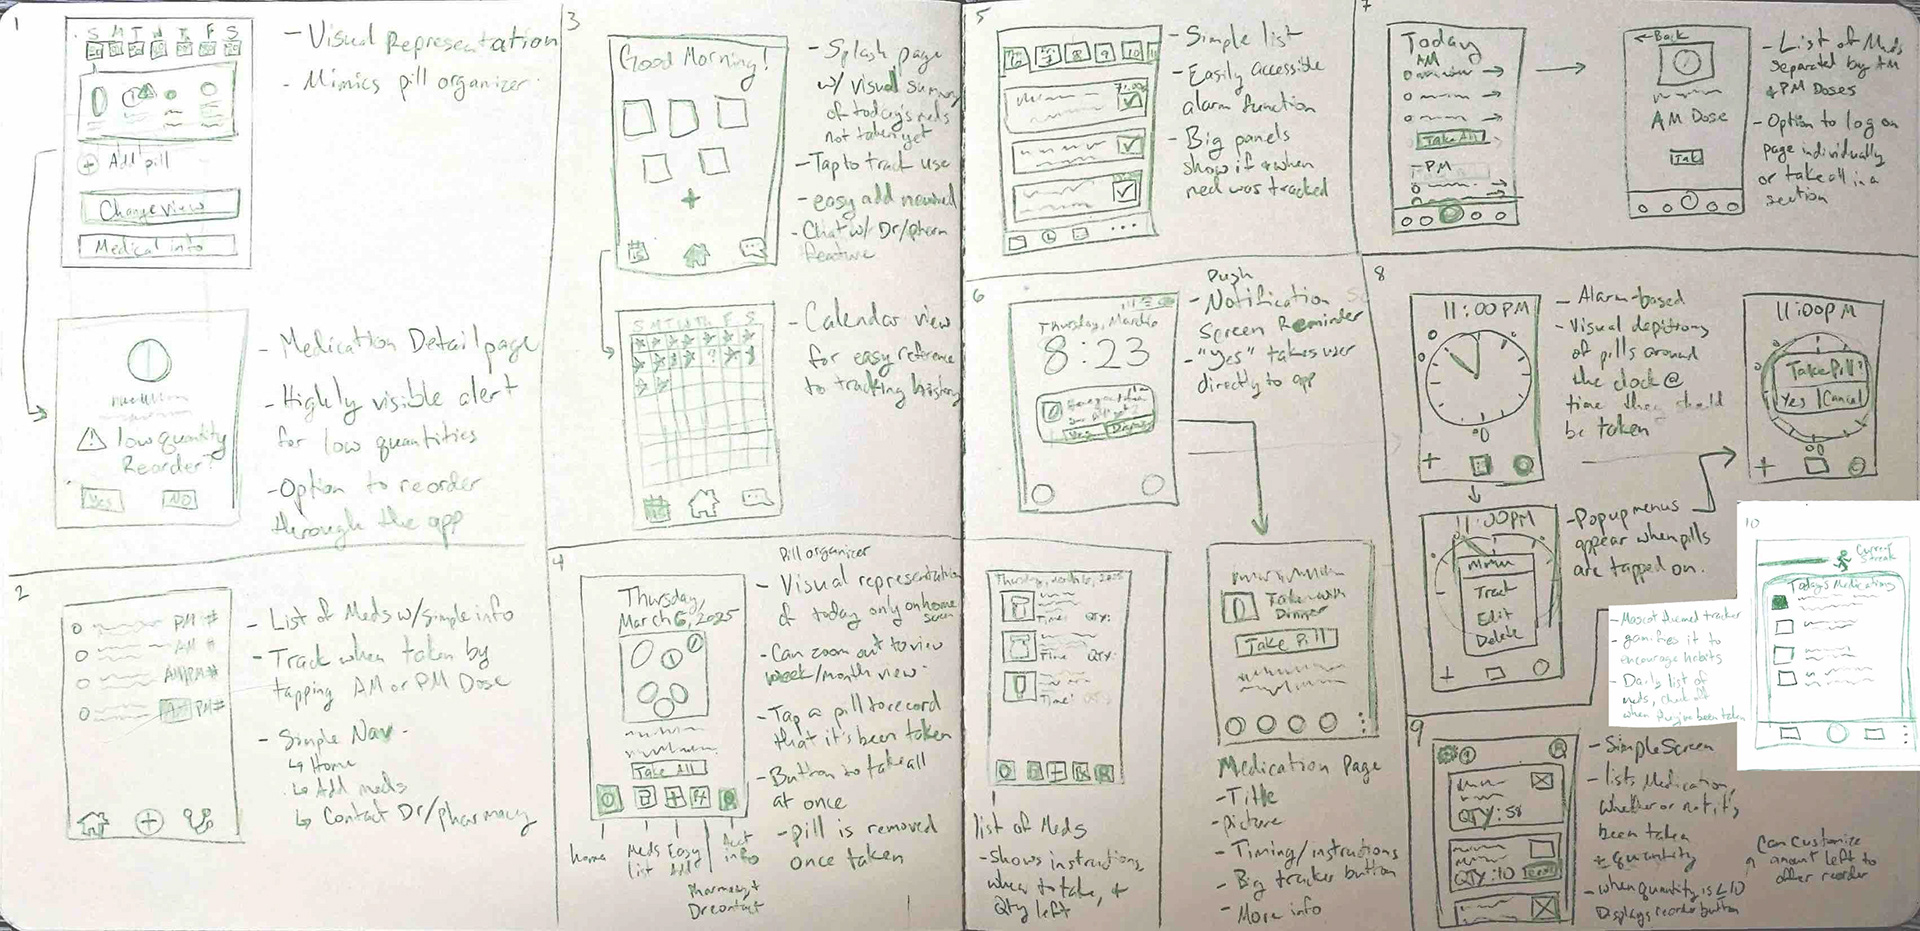 1
S M T W T F S
+ Add pill
Change view
Medical info
- Visual Representation
- Mimics pill organizer
low quantity
Reorder?
Yes NO
- Medication Detail page
- Highly visible alert
for low quantities
- Option to reorder
through the app
2
PM #
AM #
AM/PM #
AM PM #
- List of Meds w/simple info
- Track when taken by
tapping AM or PM Dose
- Simple Nav.
↳ Home
↳ Add meds
↳ Contact Dr/pharmacy
3
Good Morning!
+
- Splash page
w/ visual summary
of today's meds
not taken yet
- Tap to track use
- easy add new med
- Chat w/ Dr/pharm
feature
S M T W Th F S
?
- Calendar view
for easy reference
to tracking history
4
Thursday,
March 6, 2025
Take All
Home
Meds
list
Easy
Add
Pharmacy +
Dr contact
Acct
info
Pill organizer
- Visual representation
of today only on home
screen
- Can zoom out to view
week/month view.
- Tap a pill to record
that it's been taken
- Button to take all
at once
- pill is removed
once taken
5
8 9 10 11
- Simple list
- Easily accessible
alarm function
- Big panels
show if + when
med was tracked
6
Thursday, March 6
8:23
Yes
- Push
Notification
Screen Reminder
- "Yes" takes user
directly to app
Thursday, March 6, 2025
Time: QTY:
Time QTY:
Time:
list of Meds
- shows instructions,
when to take, +
Qty left
Take with
Dinner
Take Pill
Medication Page
- Title
- picture
- Timing/instructions
- Big tracker button
- More info
7
Today
AM
Take All
PM
← Back
AM Dose
- List of Meds
separated by AM
+ PM Doses
- Option to log on
page individually
or take all in a
section
8
11:00PM
- Alarm-based
- Visual depictions
of pills around
the clock @
time they should
be taken
11:00PM
Take Pill?
Yes | Cancel
11:00PM
Track
Edit
Delete
- Popup menus
appear when pills
are tapped on.
9
QTY: 58
QTY: 10
- Simple Screen
- lists Medication,
whether or not it's
been taken
+ quantity
- when quantity is ≤10
Displays reorder button
Can customize
amount left to
offer reorder
10
Current
Streak
Today's Medications
- Mascot themed tracker
- gamifies it to
encourage habits
- Daily list of
meds, check off
when they've been taken